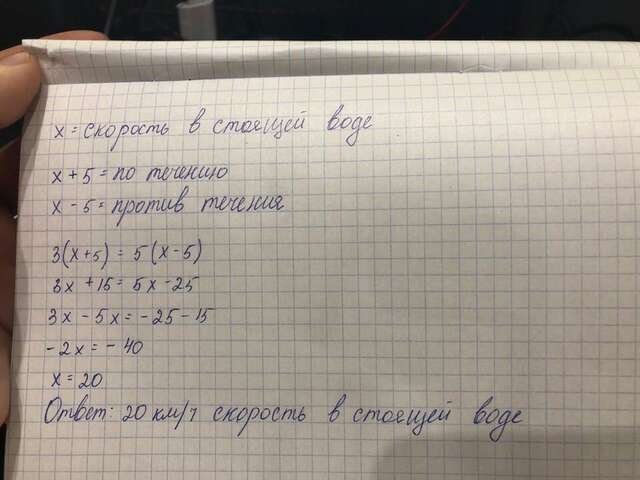 x = скорость в стоящей воде
x + 5 = по течению
x - 5 = против течения
3(x+5) = 5(x-5)
3x + 15 = 5x - 25
3x - 5x = -25 - 15
-2x = -40
x = 20
Ответ: 20 км/ч скорость в стоящей воде